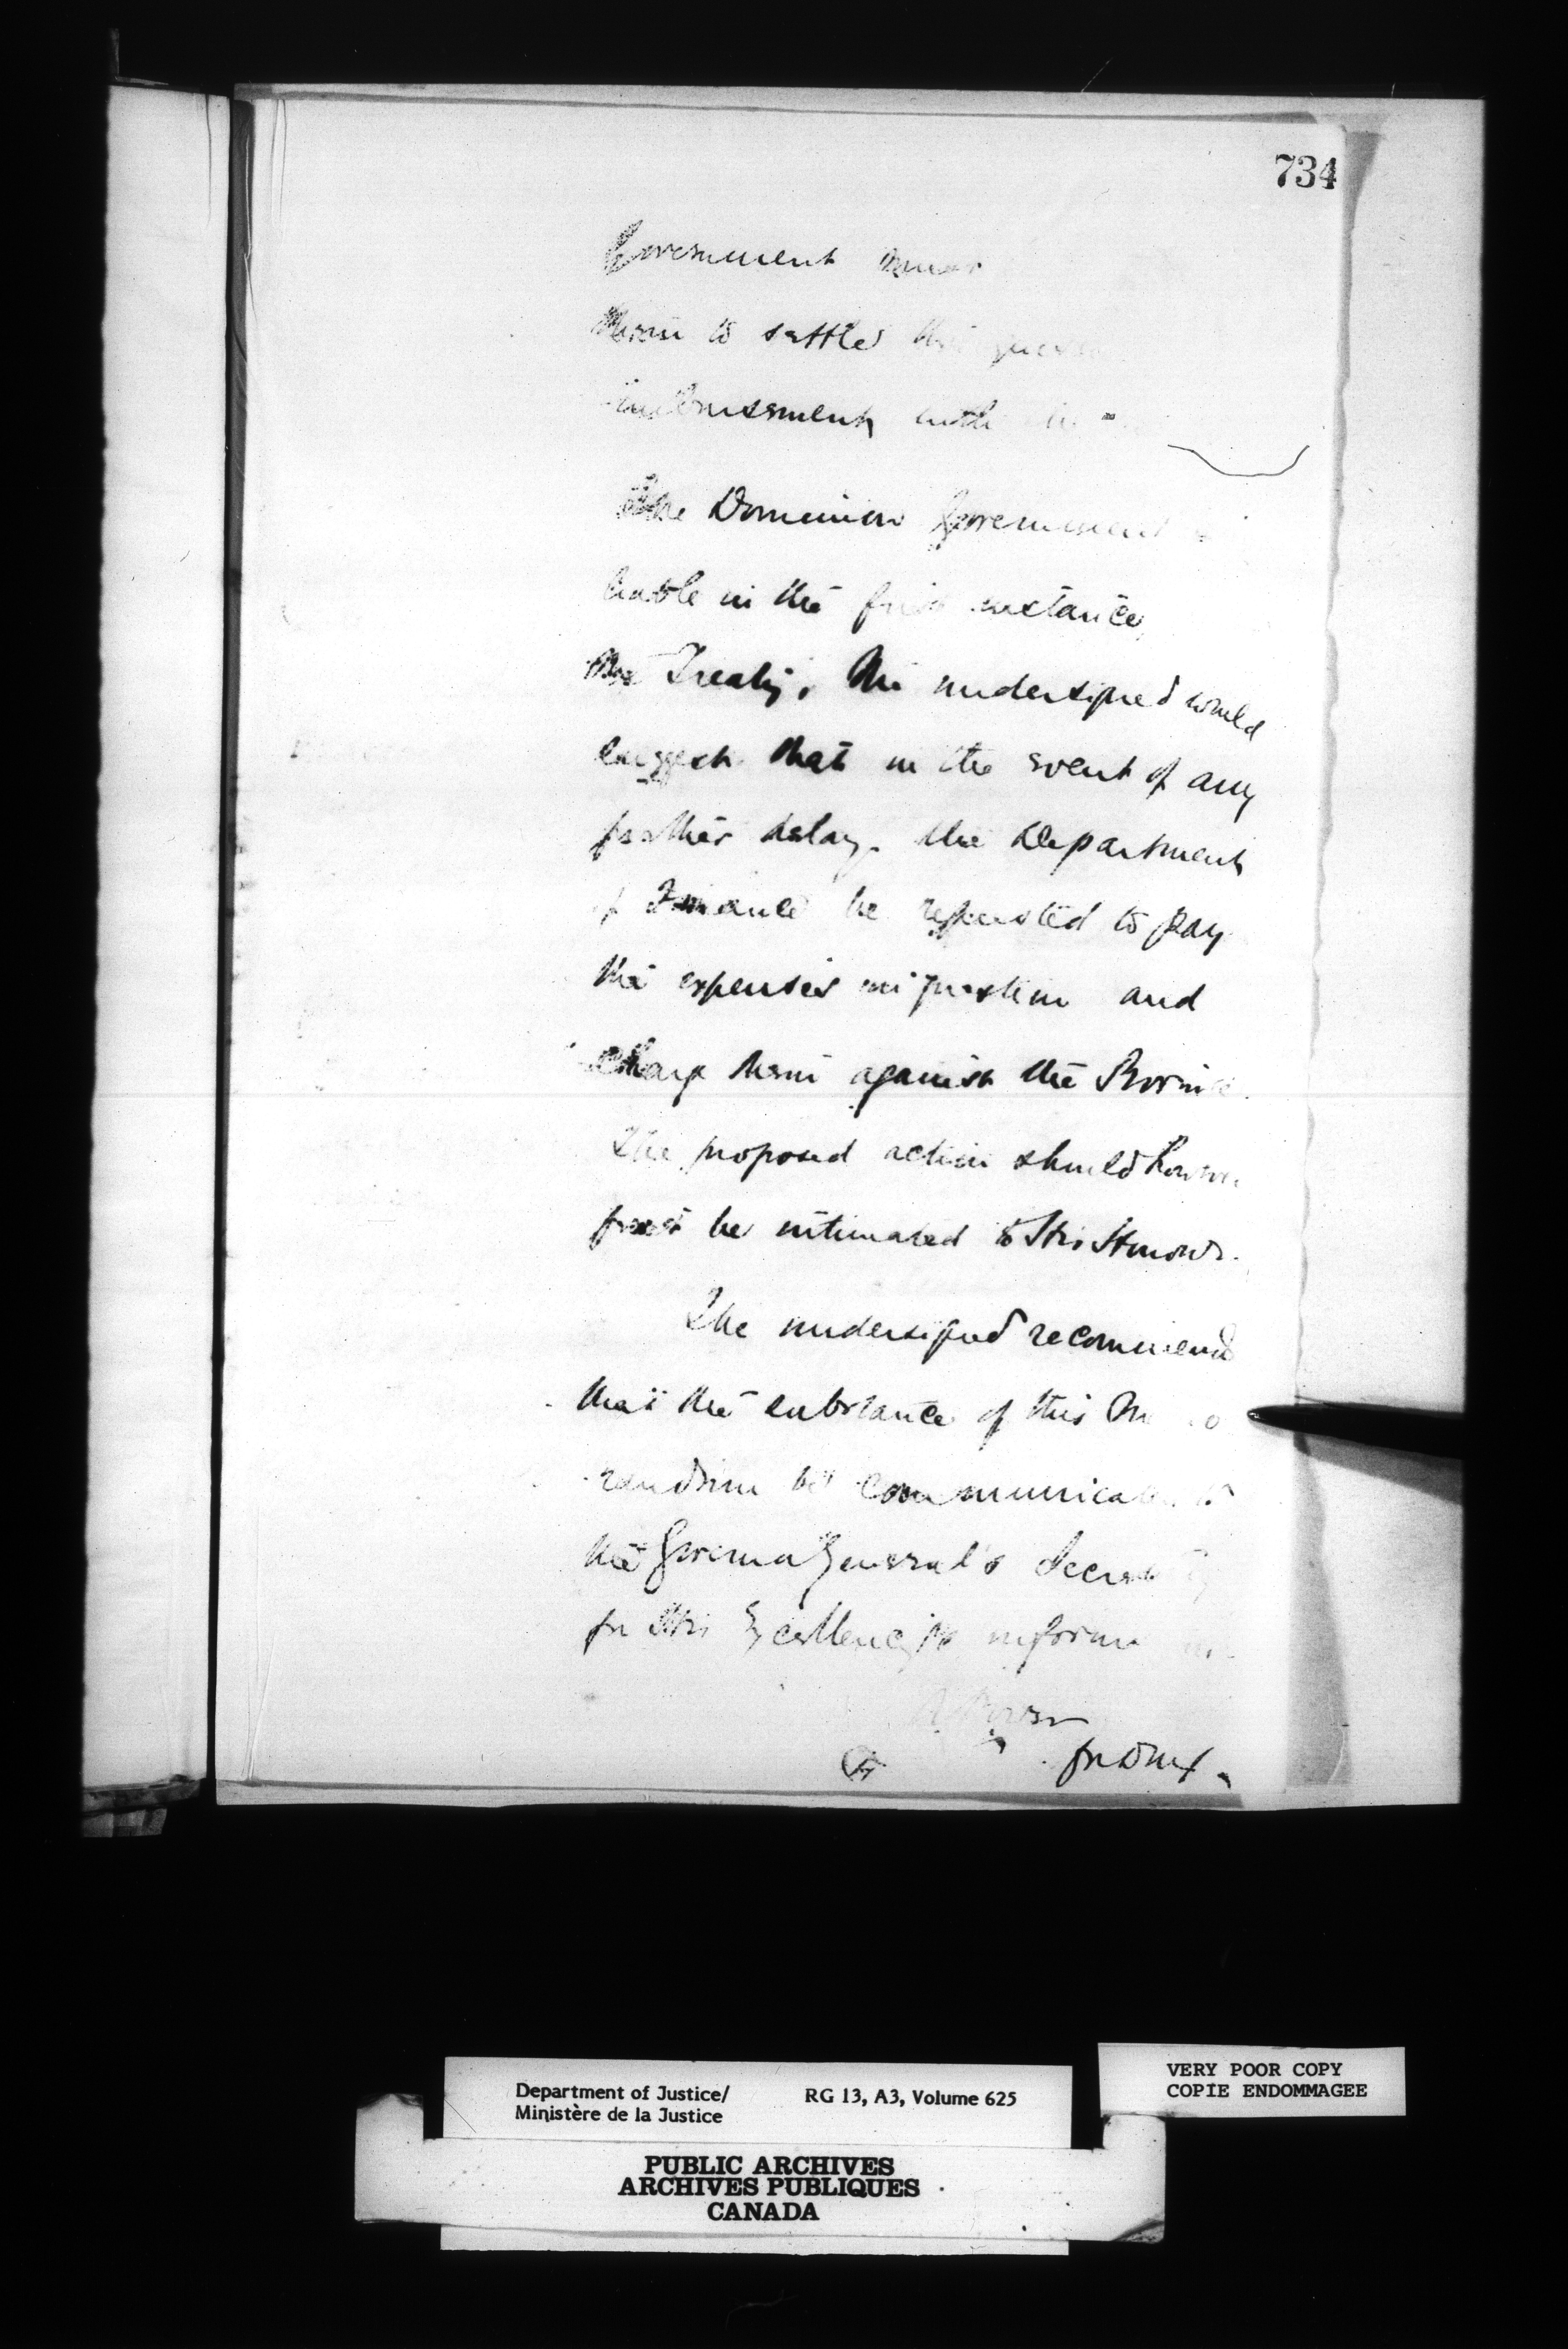 734
Government
them to settle this
imbursement with
The Dominion Government
liable in the first instance
the Treaty, the undersigned would
suggest that in the event of any
further delay. the Department
of Finance be requested to pay
the expenses in question and
charge them against the Province.
The proposed action should however
first be intimated to His Honour.
The undersigned recommend
that the substance of this Memo
randum be communicated to
the Governor General's Secretary
for His Excellency's information
Power
for DMJ.
Department of Justice/
Ministère de la Justice
RG 13, A3, Volume 625
VERY POOR COPY
COPIE ENDOMMAGEE
PUBLIC ARCHIVES
ARCHIVES PUBLIQUES
CANADA